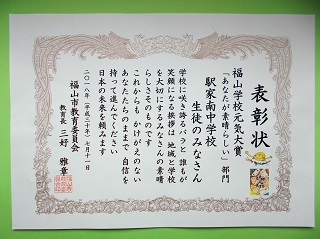 表彰状
福山学校元気大賞
「あなたが素晴らしい」部門
駅家南中学校
生徒のみなさん
学校に咲き誇るバラと 誰もが
笑顔になる挨拶は 地域と学校
を大切にするみなさんの素晴
らしさそのものです
これからも かけがえのない
あなたたちのままで 自信を
持って進んでください
日本の未来を頼みます
二〇一八年(平成三十年)七月十一日
福山市教育委員会
教育長 三好 雅章